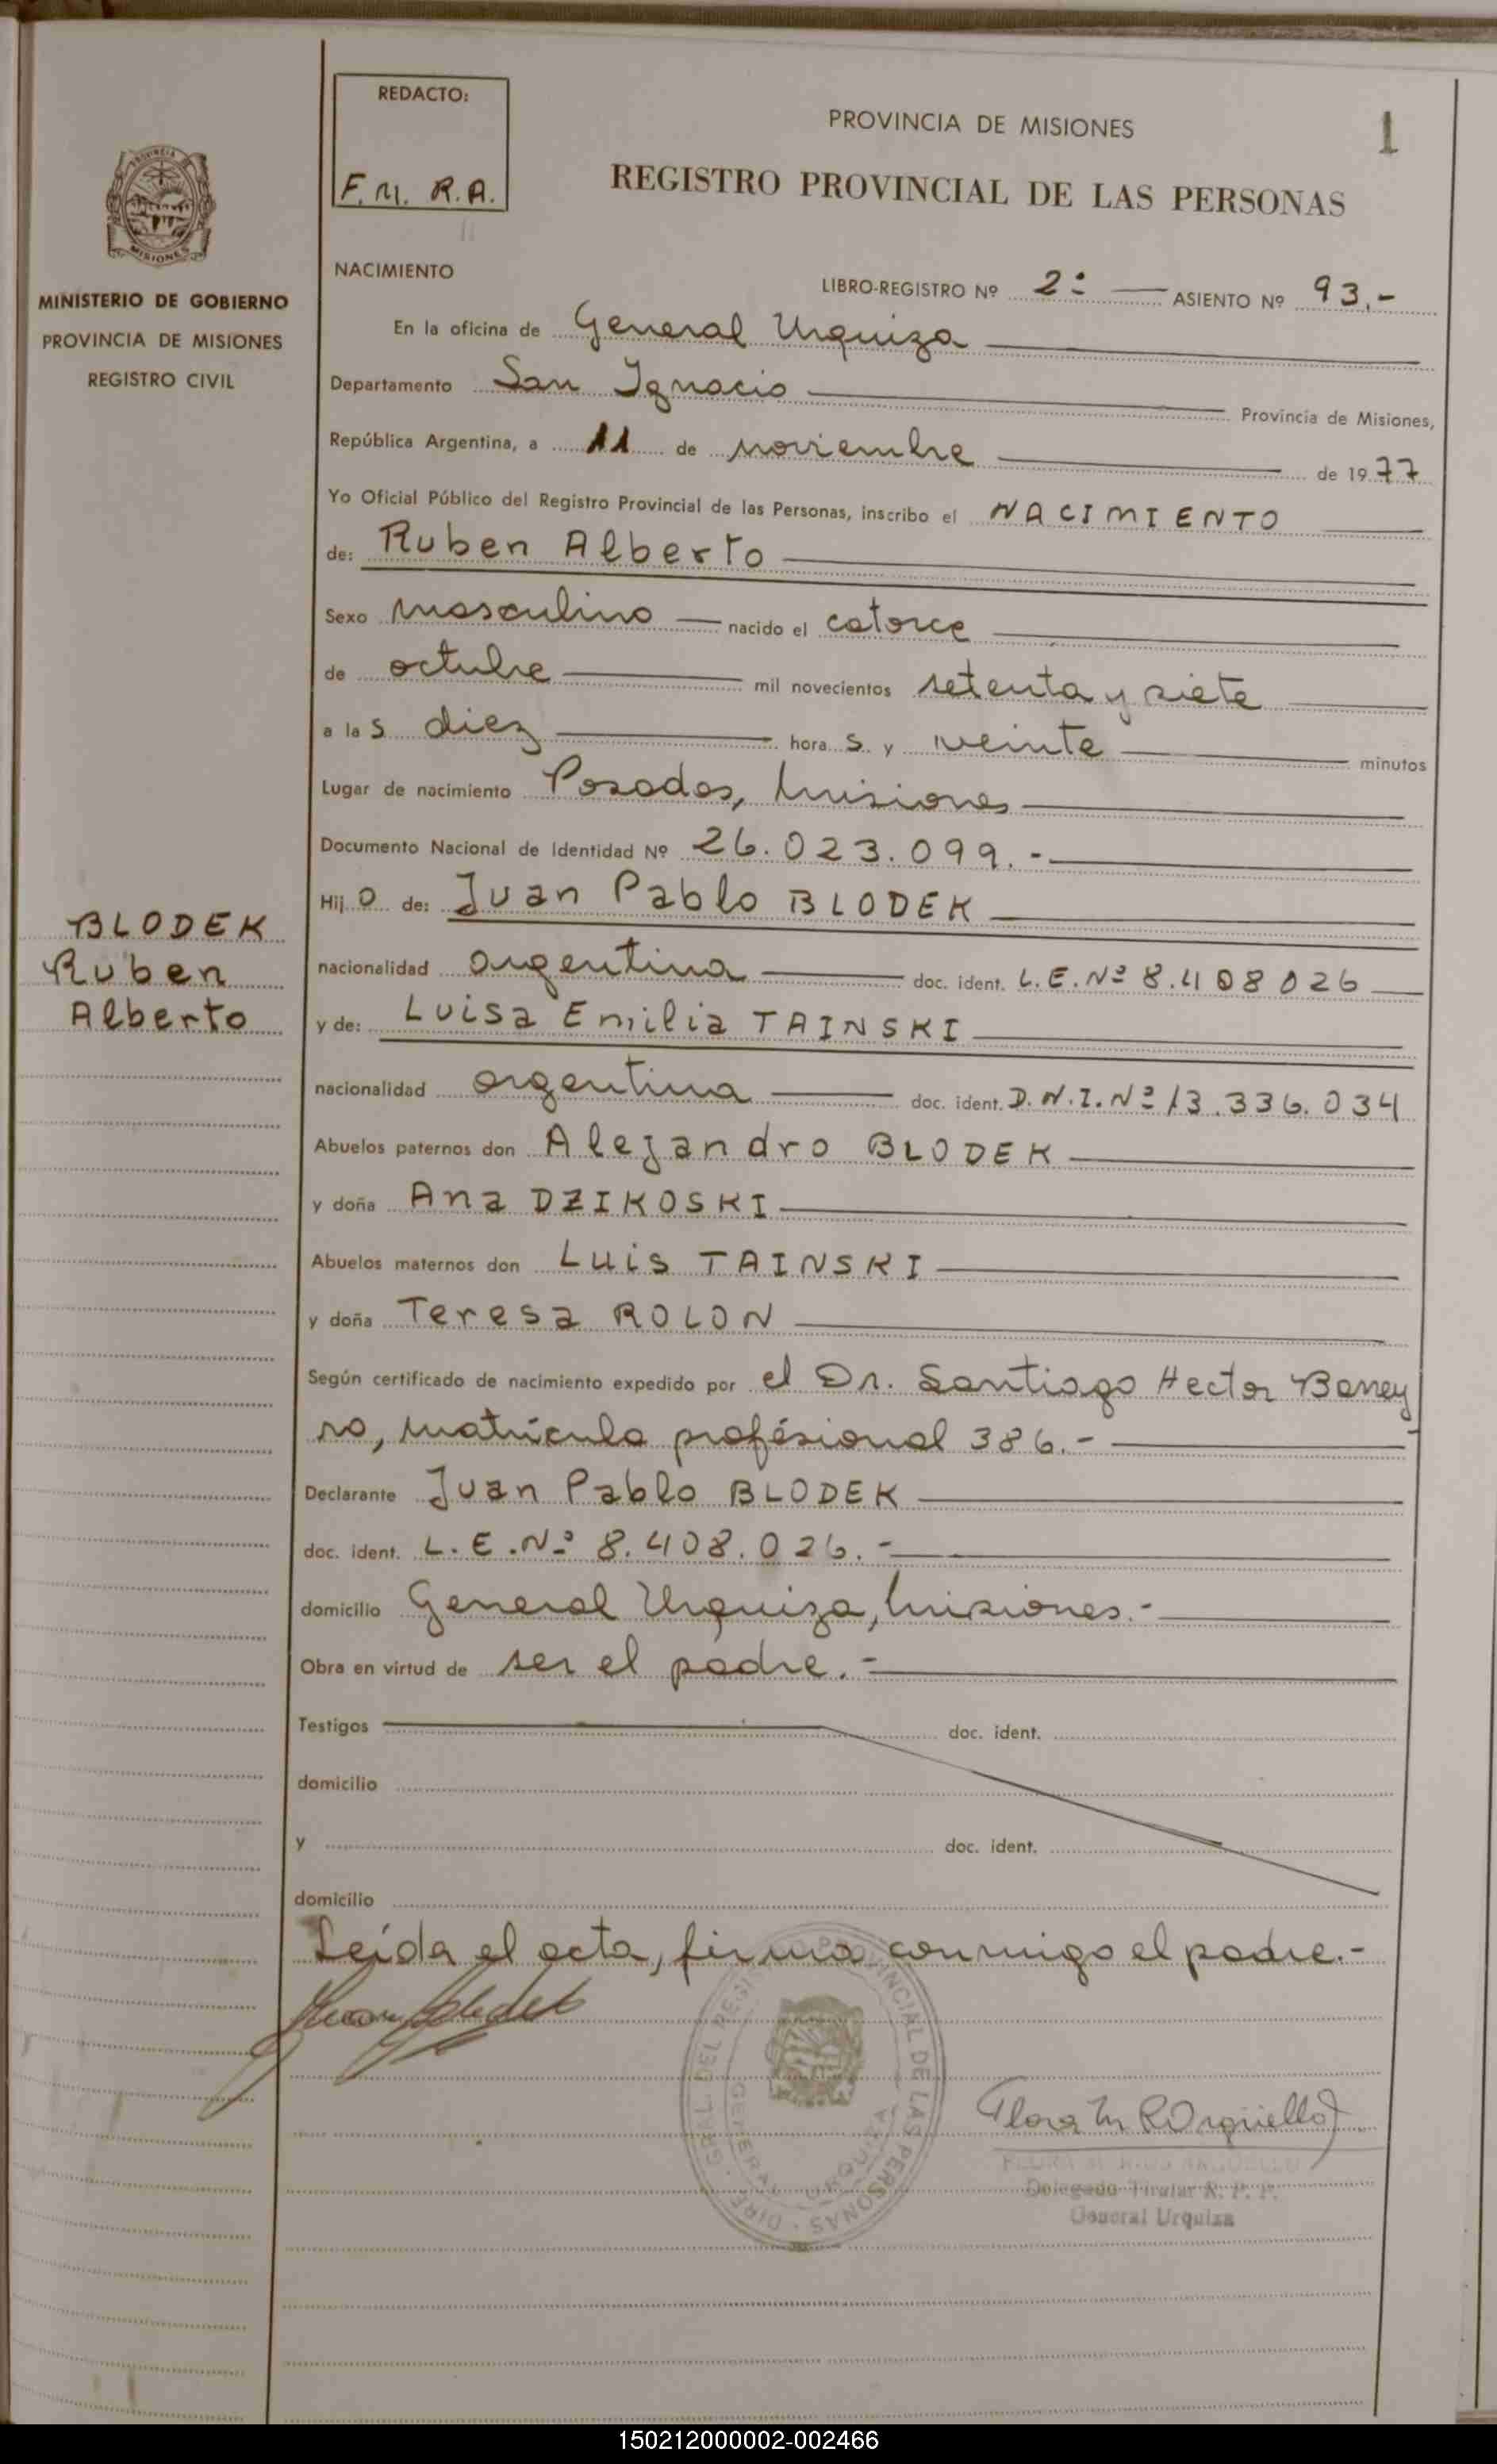 REDACTO:
F. M. R.A.
PROVINCIA DE MISIONES
1
REGISTRO PROVINCIAL DE LAS PERSONAS
MISIONES
MINISTERIO DE GOBIERNO
PROVINCIA DE MISIONES
REGISTRO CIVIL
NACIMIENTO
LIBRO-REGISTRO Nº 2º — ASIENTO Nº 93.-
En la oficina de General Urquiza
Departamento San Ignacio Provincia de Misiones,
República Argentina, a 11 de noviembre de 1977
Yo Oficial Público del Registro Provincial de las Personas, inscribo el NACIMIENTO
de: Ruben Alberto
Sexo masculino nacido el catorce
de octubre mil novecientos setenta y siete
a las diez horas y veinte minutos
Lugar de nacimiento Posadas, Misiones
Documento Nacional de Identidad Nº 26.023.099.-
Hijo de: Juan Pablo BLODEK
BLODEK
Ruben
Alberto
nacionalidad argentina doc. ident. L.E.Nº 8.408026
y de: Luisa Emilia TAINSKI
nacionalidad argentina doc. ident. D.N.I.Nº 13.336.034
Abuelos paternos don Alejandro BLODEK
y doña Ana DZIKOSKI
Abuelos maternos don Luis TAINSKI
y doña Teresa ROLON
Según certificado de nacimiento expedido por el Dr. Santiago Hector Barrey
ro, matrícula profésional 386.-
Declarante Juan Pablo BLODEK
doc. ident. L.E.Nº 8.408.026.-
domicilio General Urquiza, Misiones.-
Obra en virtud de ser el padre.-
Testigos doc. ident.
domicilio
y doc. ident.
domicilio
Leída el acta, firma conmigo el padre.-
DIRE. GRAL. DEL REGISTRO PROVINCIAL DE LAS PERSONAS
GENERAL URQUIZA
Flora M R Arguello
FLORA M. RIOS ARGUELLO
Delegado Titular R. P. P.
General Urquiza
150212000002-002466